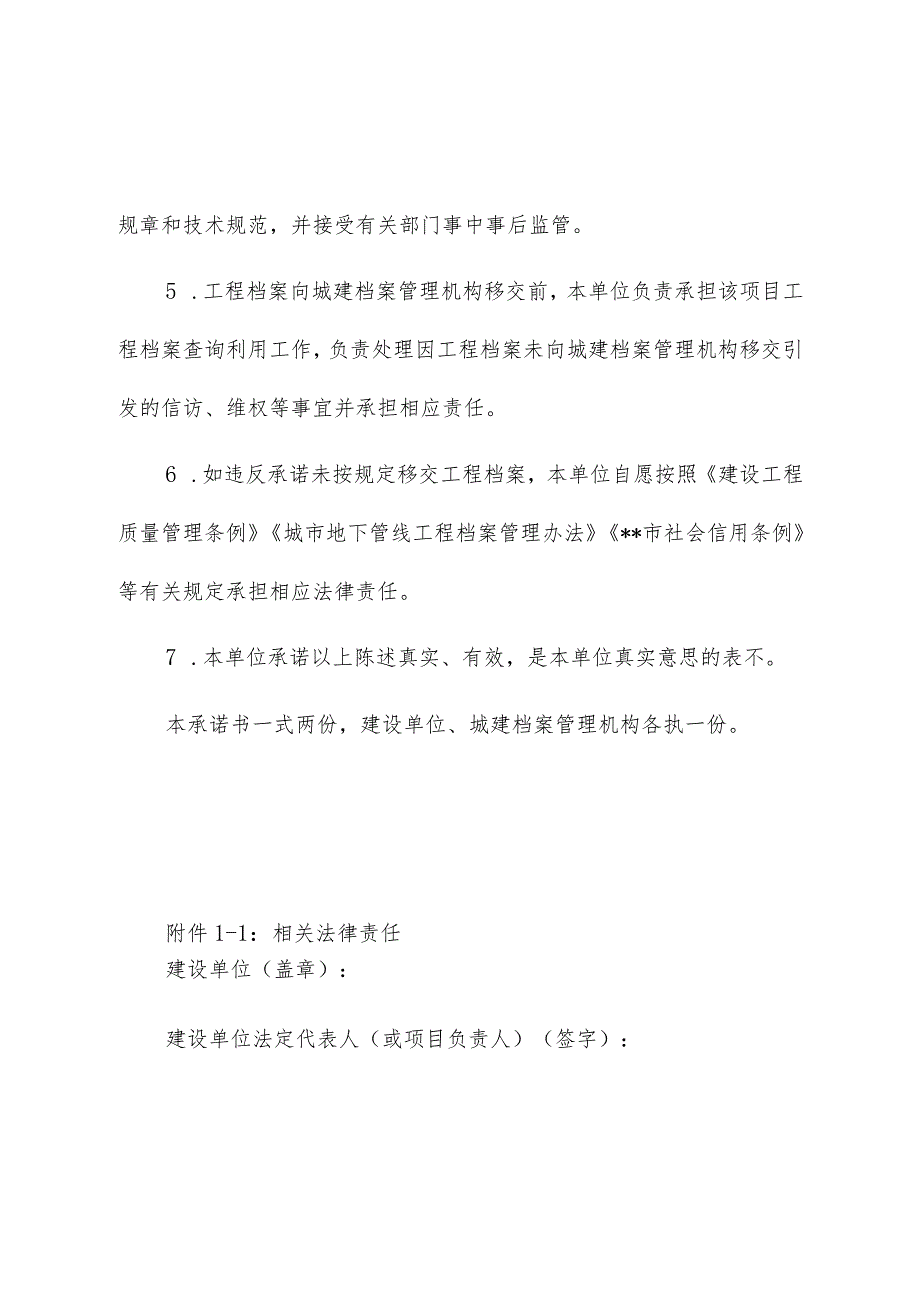 规章和技术规范，并接受有关部门事中事后监管。
5 .工程档案向城建档案管理机构移交前，本单位负责承担该项目工
程档案查询利用工作，负责处理因工程档案未向城建档案管理机构移交引
发的信访、维权等事宜并承担相应责任。
6 .如违反承诺未按规定移交工程档案，本单位自愿按照《建设工程
质量管理条例》《城市地下管线工程档案管理办法》《**市社会信用条例》
等有关规定承担相应法律责任。
7 .本单位承诺以上陈述真实、有效，是本单位真实意思的表不。
本承诺书一式两份，建设单位、城建档案管理机构各执一份。
附件1-1：相关法律责任
建设单位（盖章）：
建设单位法定代表人（或项目负责人）（签字）：